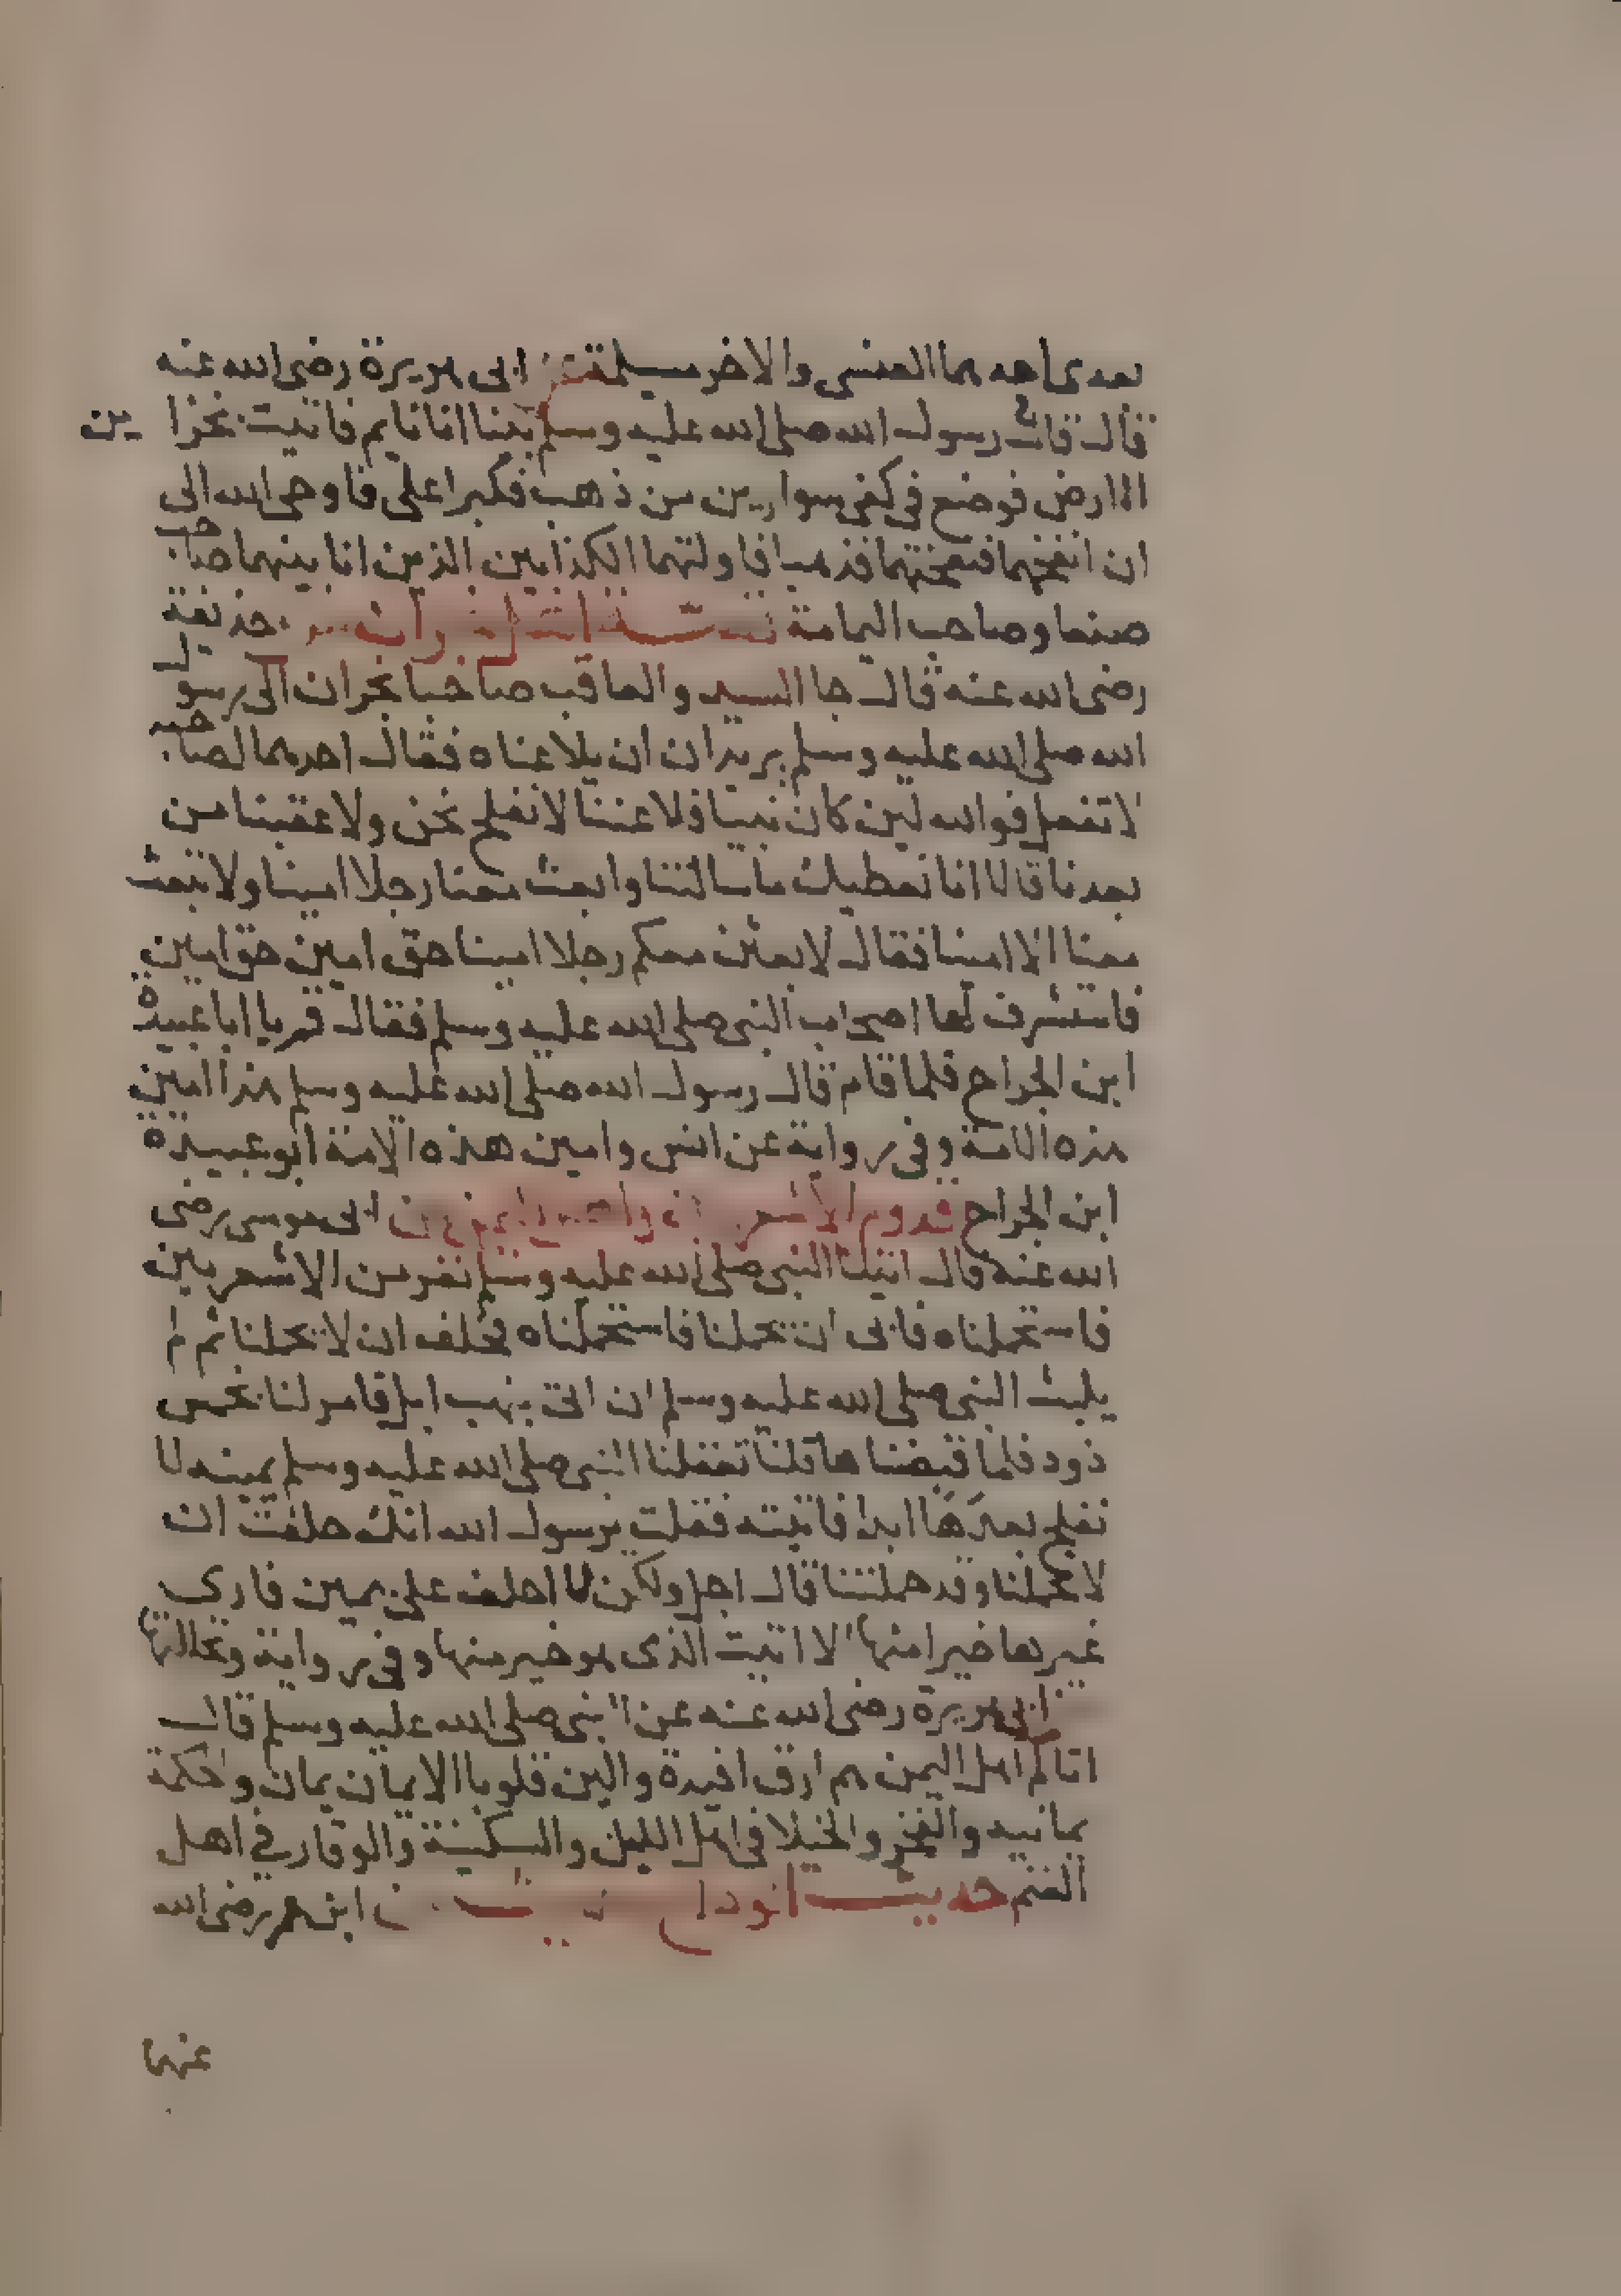 بعدى احدهما العنسى والاخر مسيلمة عن ابى هريرة رضى الله عنه
قال قال رسول الله صلى الله عليه وسلم بينا انا نايم فاتيت بخزا ين
الارض فوضع فى كفى سوارين من ذهب فكبرا على فاوحى الله الى
ان انفخهما فنفختهما فذهبا فاولتهما الكذابين الذين انا بينهما صاحب
صنعا وصاحب اليمامة قصة اهل نجران عن حذيفة
رضى الله عنه قال جا السيد والعاقب صاحبا نجران الى رسول
الله صلى الله عليه وسلم يريدان ان يلاعناه فقال احدهما لصاحبه
لا تفعل فوالله لين كان نبيا فلاعننا لا نفلح نحن ولا عقبنا من
بعدنا قالا انا نعطيك ما سالتنا وابعث معنا رجلا امينا ولا تبعث
معنا الا امينا فقال لابعثن معكم رجلا امينا حق امين حق امين
فاستشرف لها اصحاب النبى صلى الله عليه وسلم فقال قم يا ابا عبيدة
ابن الجراح فلما قام قال رسول الله صلى الله عليه وسلم هذا امين
هذه الامة وفى رواية عن انس وامين هذه الامة ابو عبيدة
ابن الجراح قدوم الاشعريين واهل اليمن عن ابى موسى رضى
الله عنه قال اتينا النبى صلى الله عليه وسلم نفر من الاشعريين
فاستحملناه فابى ان يحملنا فاستحملناه فحلف ان لا يحملنا ثم لم
يلبث النبى صلى الله عليه وسلم ان اتى بنهب ابل فامر لنا بخمس
ذود فلما قبضناها قلنا تغفلنا النبى صلى الله عليه وسلم يمينه لا
نفلح بعدها ابدا فاتيته فقلت يرسول الله انك حلفت ان
لا تحملنا وقد حملتنا قال اجل ولكن لا احلف على يمين فارى
غيرها خيرا منها الا اتيت الذى هو خير منها وفى رواية وتحللتها
عن ابى هريرة رضى الله عنه عن النبى صلى الله عليه وسلم قال
اتاكم اهل اليمن هم ارق افيدة والين قلوبا الايمان يمان والحكمة
يمانيه والفخر والخيلا فى اهل الابل والسكينة والوقار في اهل
الغنم حديث الوداع عن ابن عمر رضى الله
عنهما